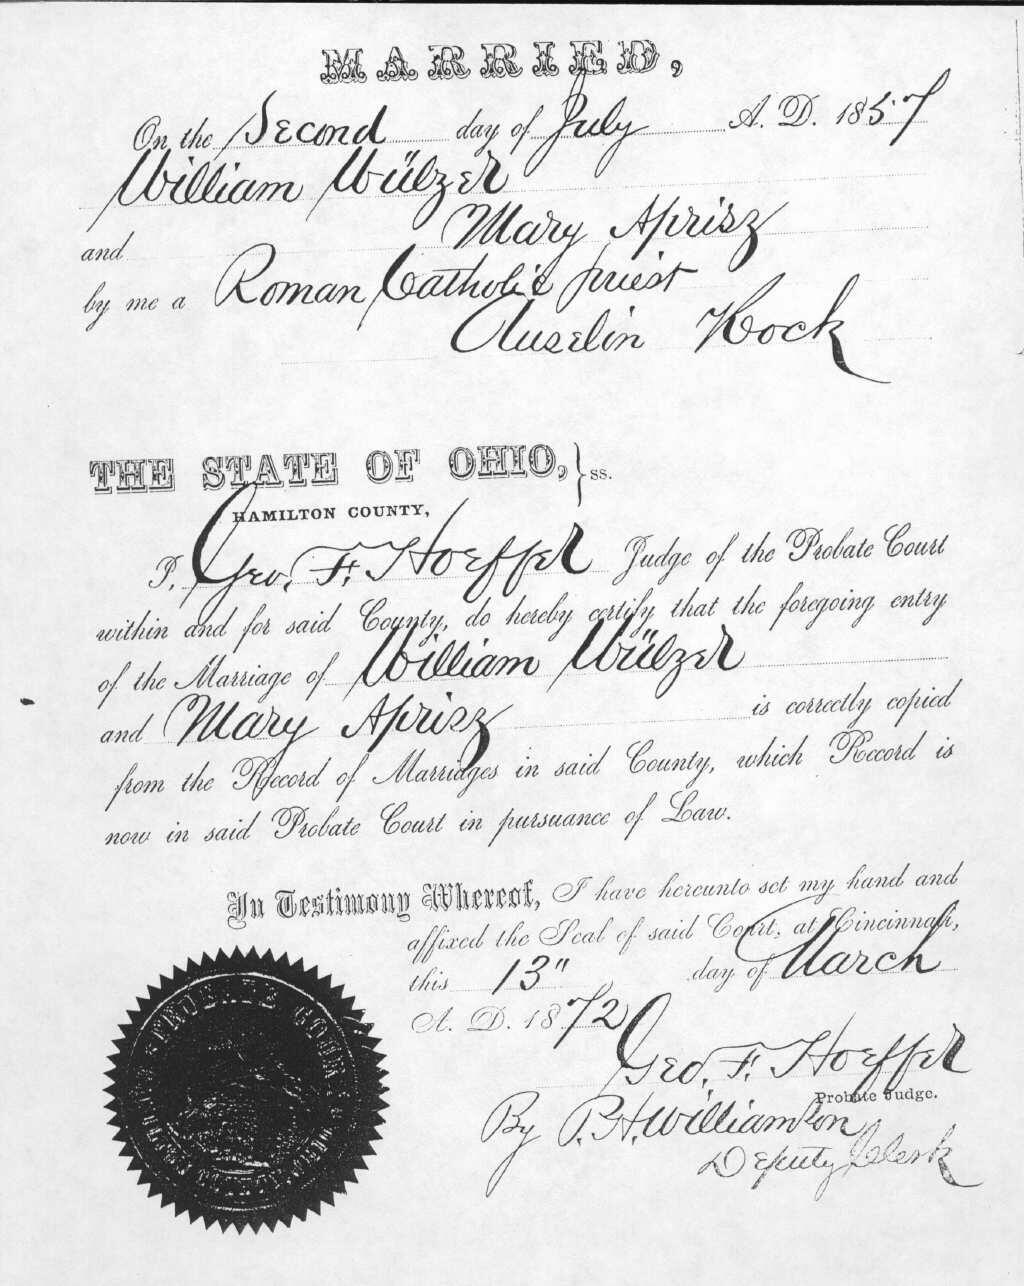 MARRIED,
On the Second day of July A. D. 1857
William Wülzer
and Mary Aprisz
by me a Roman Catholic priest
Auselin Kock
THE STATE OF OHIO, } ss.
HAMILTON COUNTY,
I, Geo. F. Hoeffer Judge of the Probate Court
within and for said County, do hereby certify that the foregoing entry
of the Marriage of William Wülzer
and Mary Aprisz is correctly copied
from the Record of Marriages in said County, which Record is
now in said Probate Court in pursuance of Law.
In Testimony Whereof, I have hereunto set my hand and
affixed the Seal of said Court, at Cincinnati,
this 13" day of March
A. D. 1872
Geo. F. Hoeffer
Probate Judge.
By P. H. Williamson
Deputy Clerk
PROBATE COURT